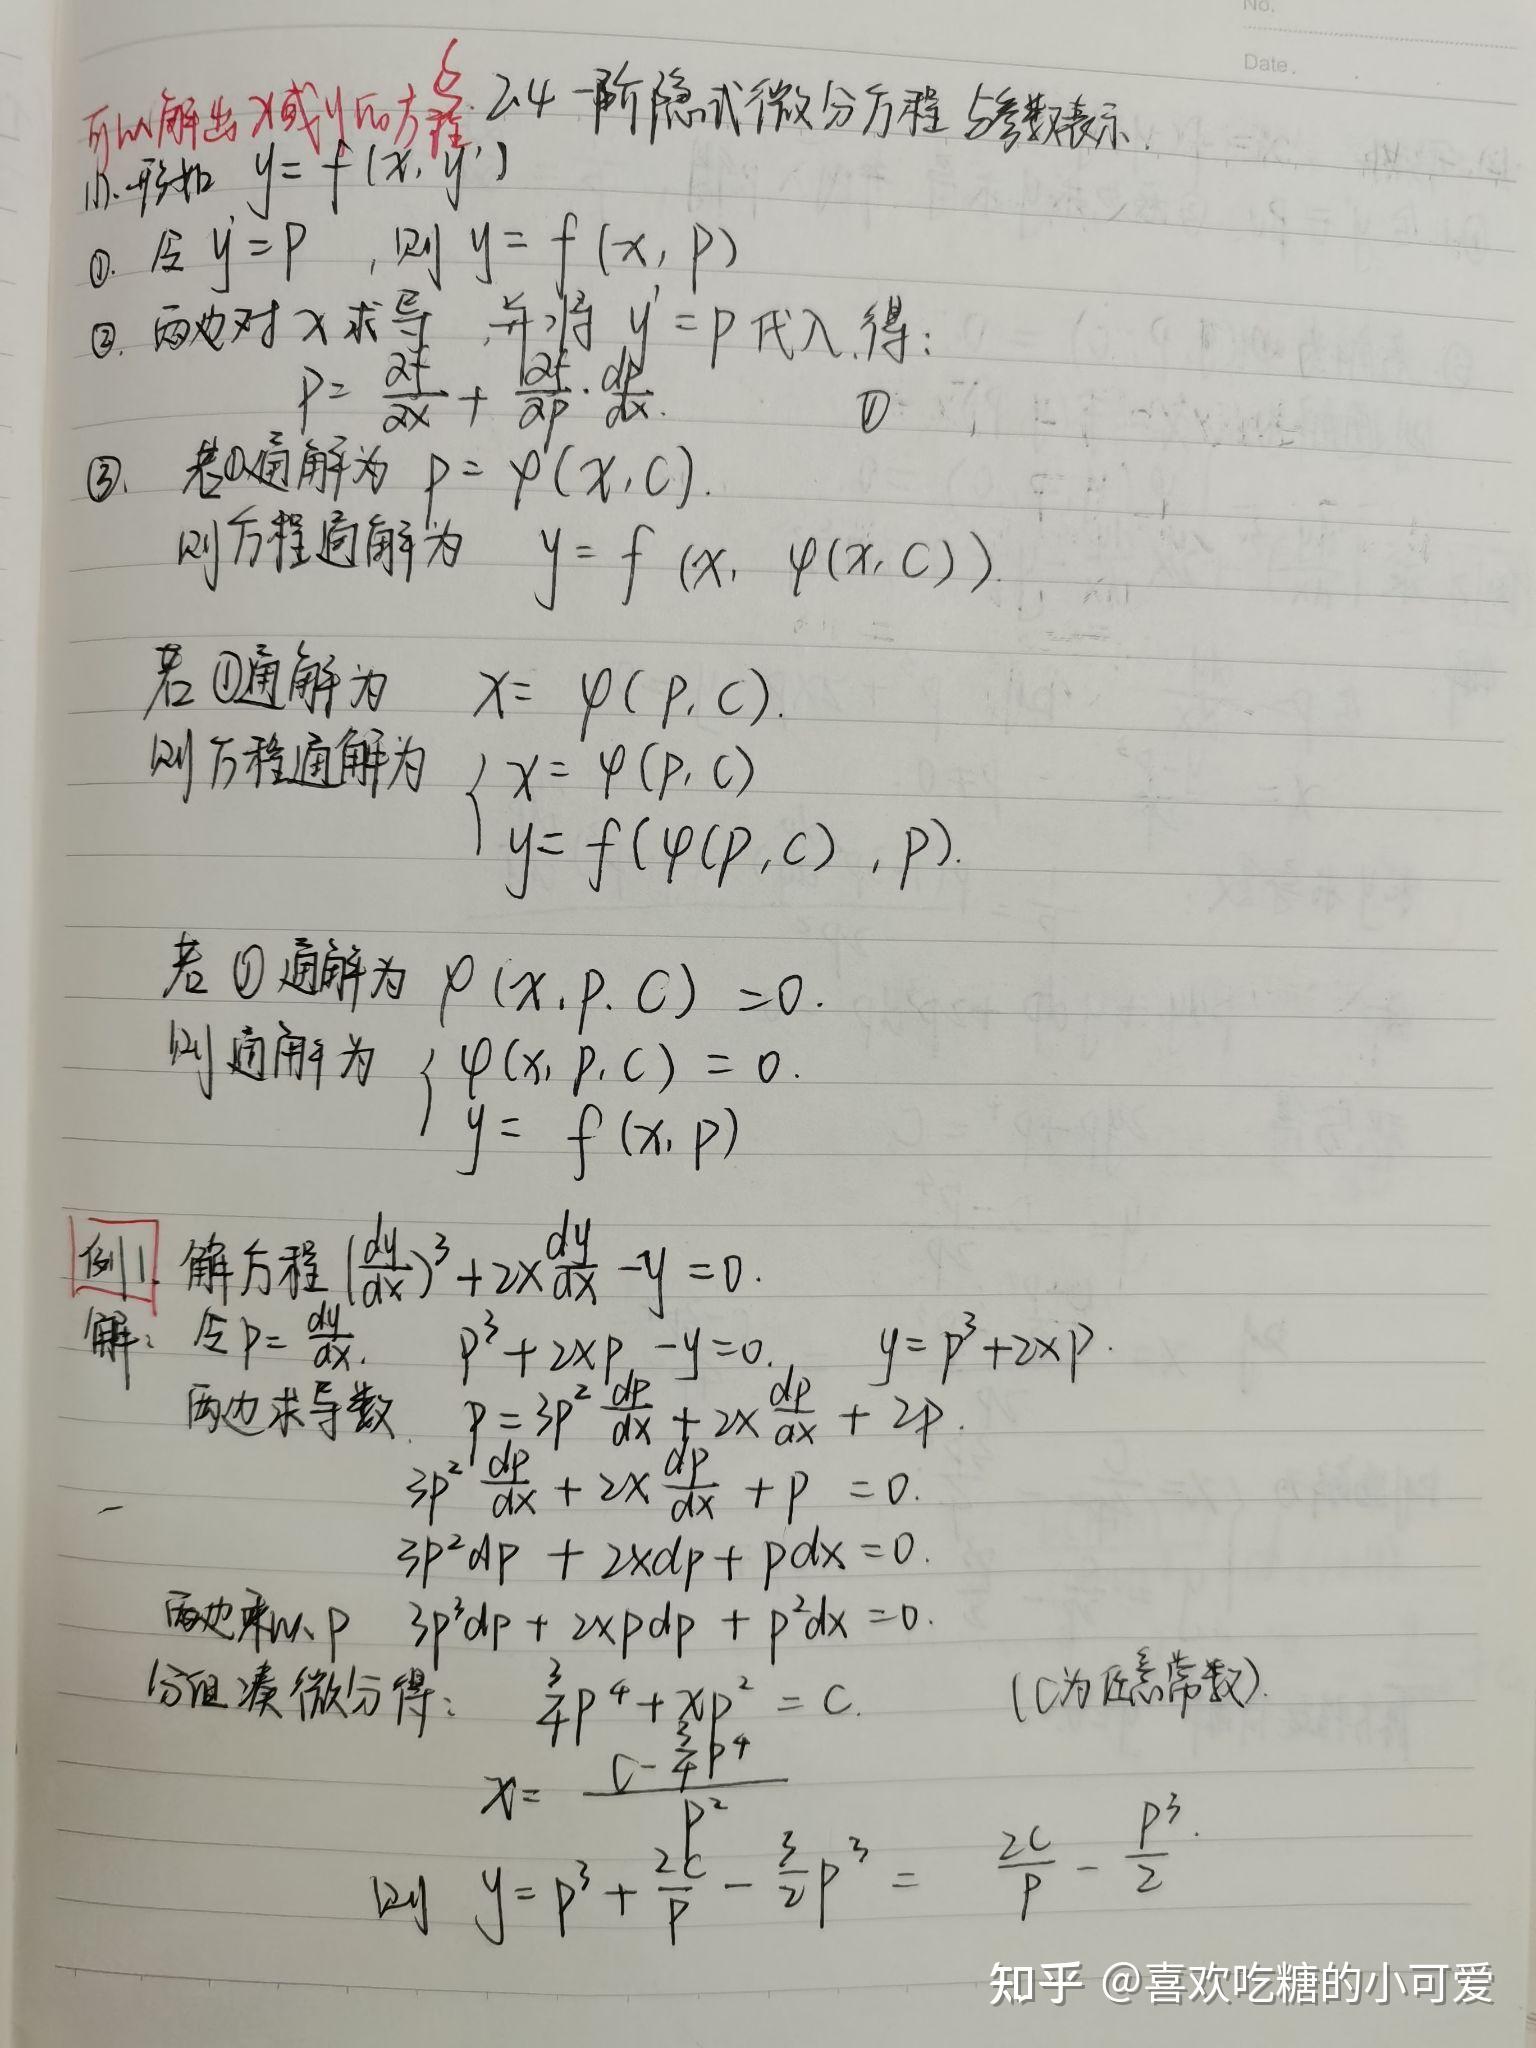 No.
Date.
§ 2.4 一阶隐式微分方程与参数表示.
可以解出x或y的方程.
(1). 形如 y = f(x, y')
①. 令 y' = p , 则 y = f(x, p)
②. 两边对 x 求导, 并将 y' = p 代入, 得:
p = ∂f/∂x + ∂f/∂p · dp/dx. ①
③. 若①通解为 p = φ(x, C).
则方程通解为 y = f(x, φ(x, C)).
若①通解为 x = φ(p, C).
则方程通解为 { x = φ(p, C)
y = f(φ(p, C), p).
若①通解为 φ(x, p, C) = 0.
则通解为 { φ(x, p, C) = 0.
y = f(x, p)
例1. 解方程 (dy/dx)³ + 2x dy/dx - y = 0.
解: 令 p = dy/dx. p³ + 2xp - y = 0. y = p³ + 2xp.
两边求导数. p = 3p² dp/dx + 2x dp/dx + 2p.
3p² dp/dx + 2x dp/dx + p = 0.
3p²dp + 2xdp + pdx = 0.
两边乘以 p 3p³dp + 2xpdp + p²dx = 0.
分组凑微分得: 3/4 p⁴ + xp² = C. (C为任意常数).
x = (C - 3/4 p⁴)/p²
则 y = p³ + 2C/p - 3/2 p³ = 2C/p - p³/2.
知乎 @喜欢吃糖的小可爱